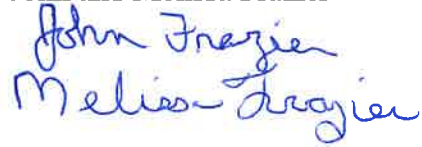 John Frazier
Melissa Frazier